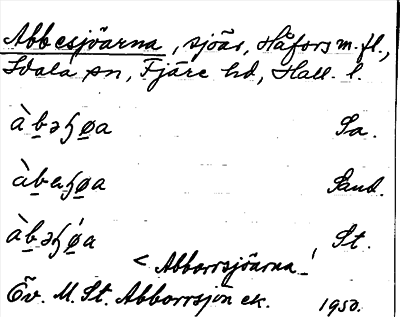 Abbesjöarna, sjöar, Håfors m.fl.,
Idala sn, Fjäre hd, Hall. l.
àbəɧøa Sa.
àbaɧøa Sand.
àbəɧǿa St.
< Abborrsjöarna !
Öv. M. St. Abborrsjön ek. 1950.